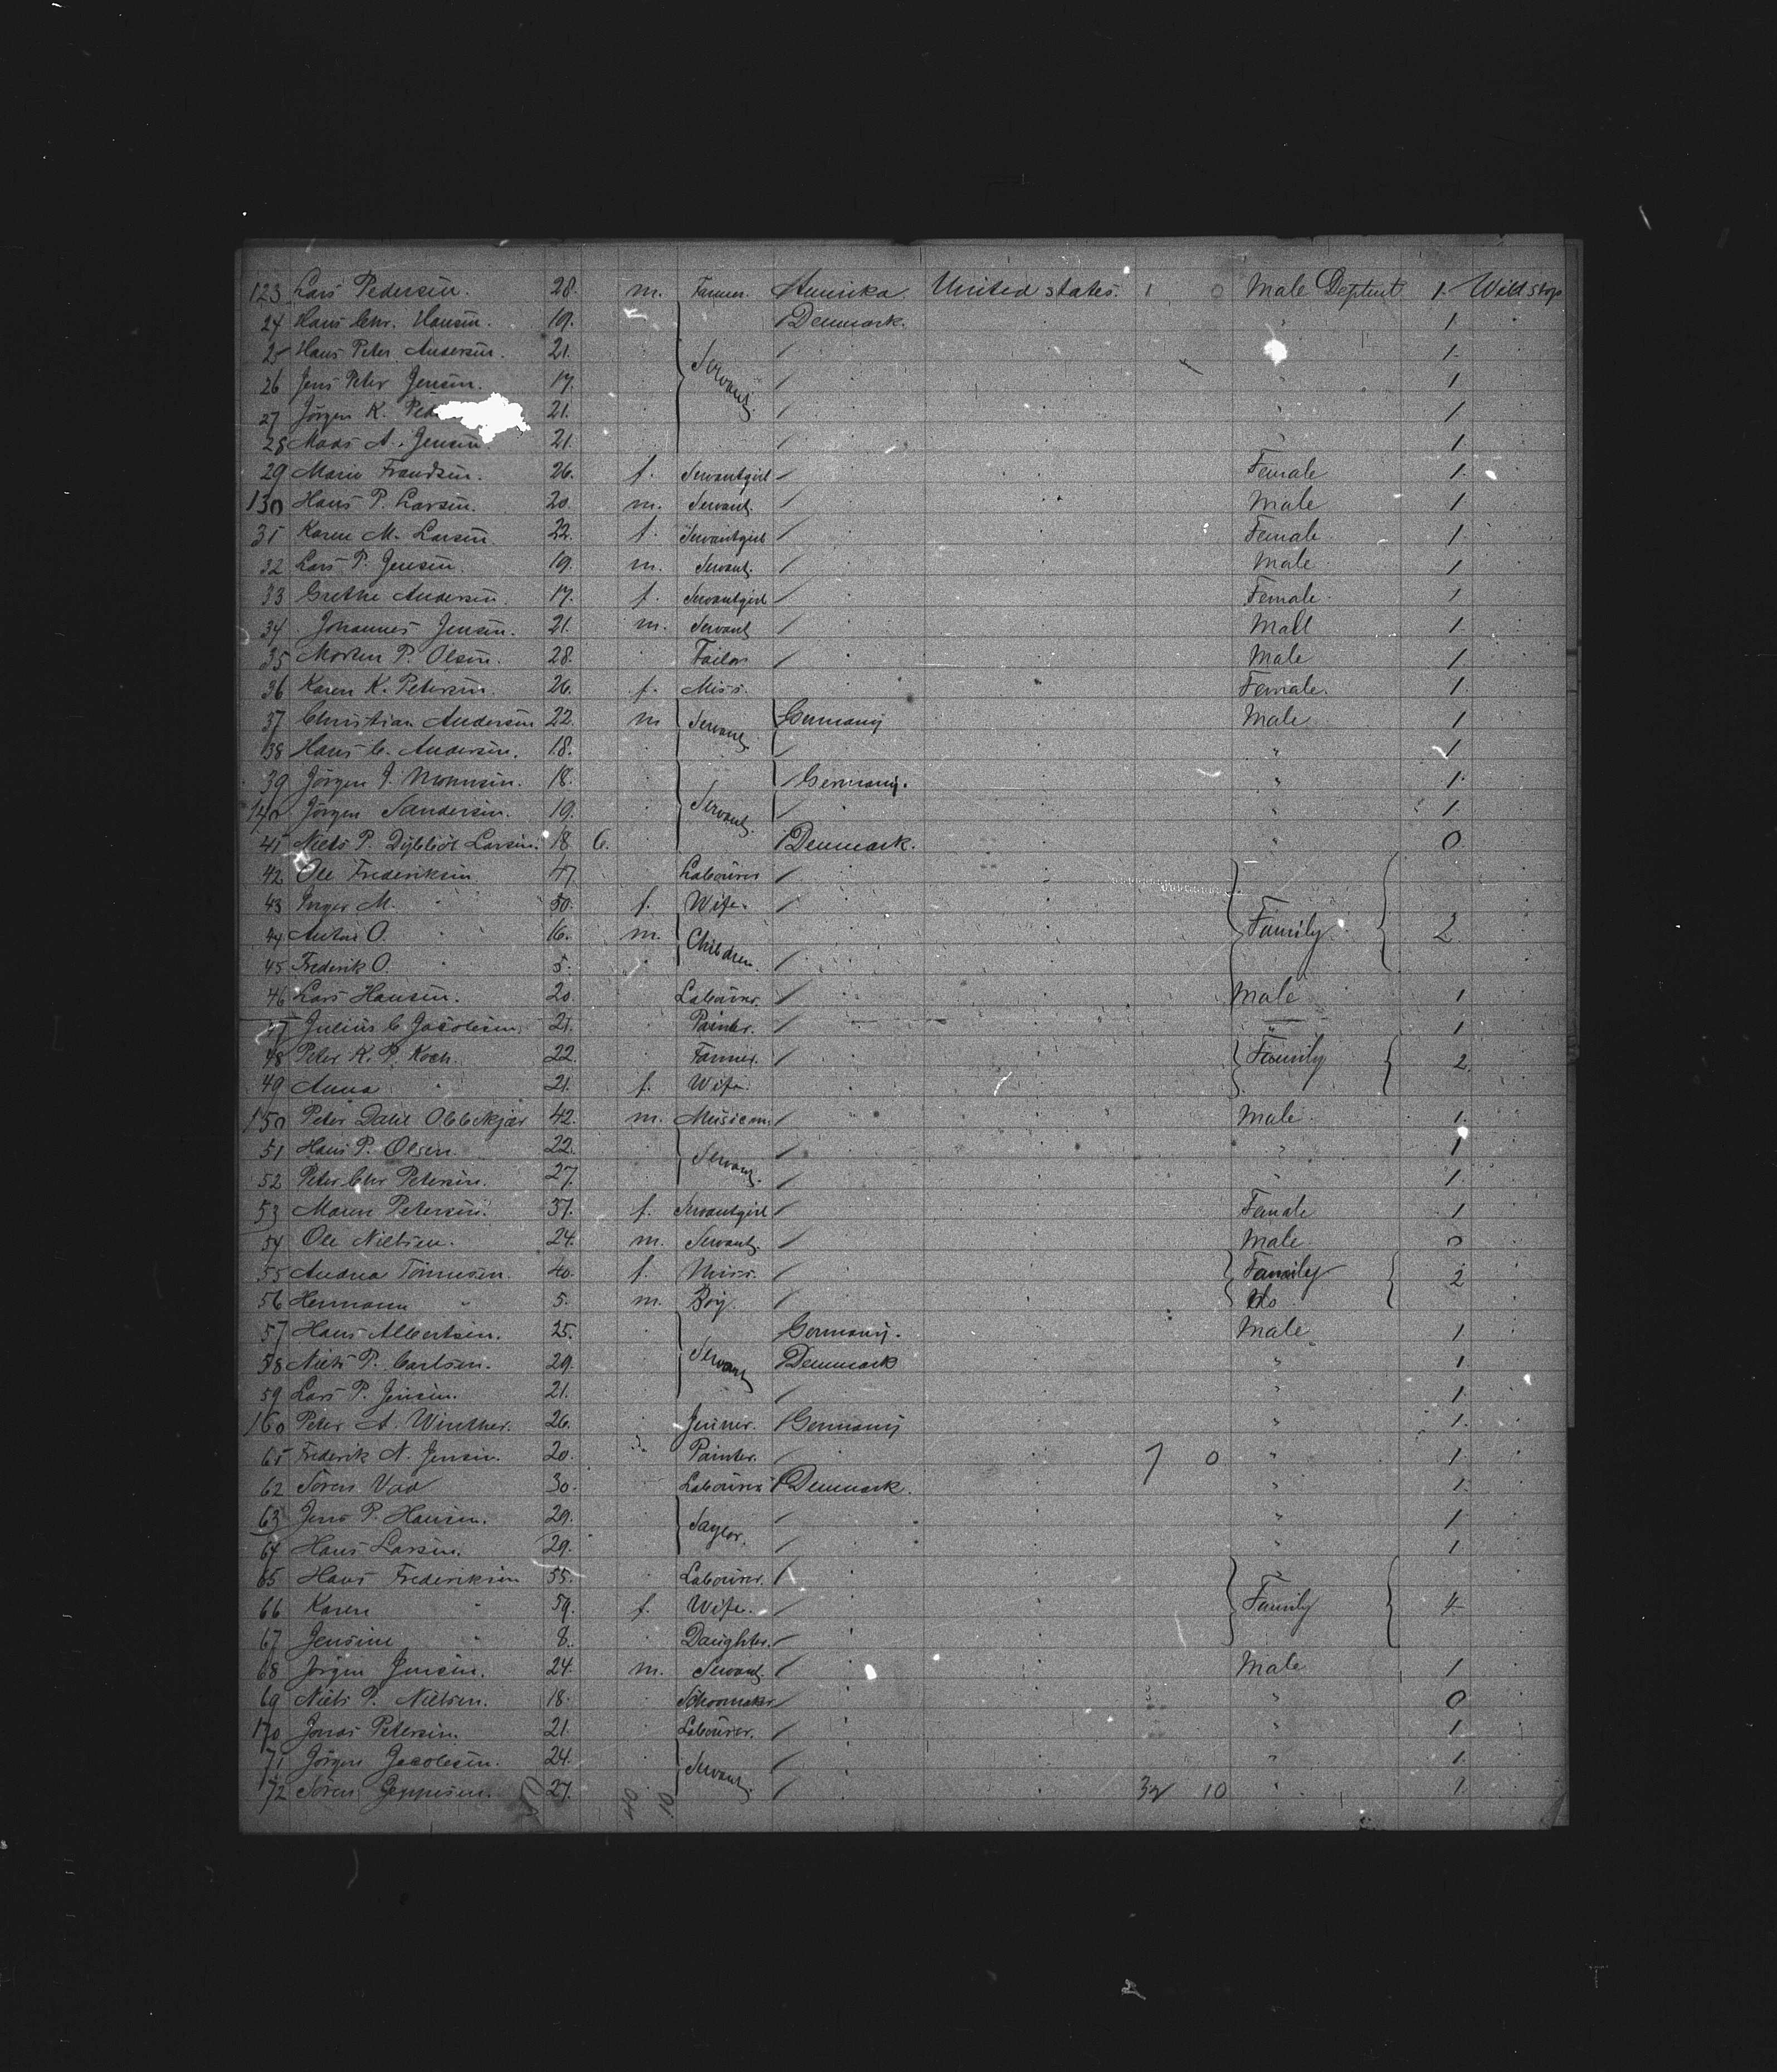 123 Lars Pedersen. 28. m. Farmer. Amerika United states. 1 0 Male Deptmt 1. Will stop
24 Hans Chr. Hansen. 19. Denmark. " 1
25 Hans Peter Andersen. 21. Servant. 1.
26 Jens Peter Jensen. 17. " 1
27 Jörgen K. 21. " 1
28 Mads A. Jensen 21. " 1
29 Marie Frandsen. 26. f. Servantgirl Female 1.
130 Hans P. Larsen. 20 m. Servant. Male 1
31 Karen M. Larsen 22. f. Servantgirl Female 1.
32 Lars P. Jensen. 19. m. Servant. Male 1
33 Grethe Andersen. 17. f. Servantgirl Female. 1
34 Johannes Jensen. 21. m. Servant Male 1.
35 Morten P. Olsen. 28. Tailor Male 1
36 Karen K. Petersen. 26. f. Miss. Female. 1.
37 Christian Andersen 22. m Servant. Germany Male 1
138 Hans C. Andersen. 18. " 1
39 Jörgen J. Mommsen. 18. Servant. Germany. " 1.
140 Jörgen Sandersen. 19. " 1.
41 Niels P. Dybböl Larsen. 18 6. Denmark. " 0
42 Ole Frederiksen 47 Labourer
43 Inger M. " 50. f. Wife.
44 Anton O. " 16. m. Children. Family 2
45 Frederik O. " 5.
46 Lars Hansen. 20. Labourer. Male 1
47 Julius C. Jacobsen. 21. Painter. " 1
48 Peter K. P. Koch. 22. Farmer. Family 2
49 Anna " 21. f. Wife.
150 Peter Dahl Obbekjær 42. m. Musicm. Male 1.
51 Hans P. Olsen. 22. Servant. " 1
52 Peter Chr Petersen. 27. " 1.
53 Maren Petersen. 37. f. Servantgirl Female 1
54 Ole Nielsen. 24. m. Servant. Male. 0
55 Andrea Tönnesen. 40. f. Miss. Family 2
56 Hermann " 5. m. Boy. do
57 Hans Albertsen. 25. Servant Germany. Male 1
58 Niels P. Carlsen. 29. Denmark " 1
59 Lars P. Jensen. 21. " 1.
160 Peter A. Winther. 26. Germany " 1.
61 Frederik N. Jensen. 20. Painter. 7 0 " 1.
62 Sören Vad 30. Labourer Denmark. " 1.
63 Jens P. Hansen. 29. Saylor. " 1
64 Hans Larsen. 29. " 1
65 Hans Frederiksen 55. Labourer.
66 Karen " 59. f. Wife. Family 4
67 Jensine " 8. Daughter.
68 Jörgen Jensen. 24. m. Servant Male 1
69 Niels P. Nielsen. 18. Schoomaker " 0
170 Jonas Petersen. 21. Labourer. " 1
71 Jörgen Jacobsen. 24. Servant. " 1.
172 Sören Jeppesen. 27. 32 10 " 1.
40 10